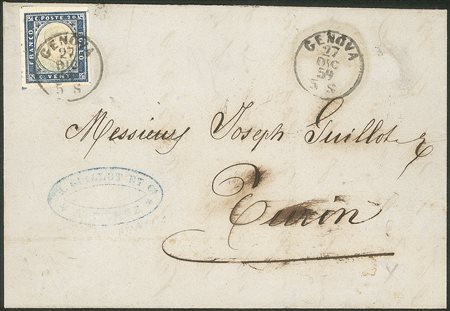 C. POSTE 20
FRANCO
BOLLO
C. VENTI
GENOVA
27
DIC
5 S
GENOVA
27
DIC
59
5 S
Messieurs Joseph Guillot &
Turin
GUILLOT ET C